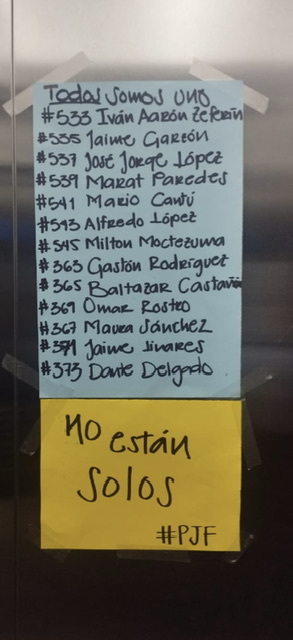 Todos somos uno
#533 Iván Aarón Zeferín
#535 Jaime Garzón
#537 José Jorge López
#539 Marat Paredes
#541 Mario Cantú
#543 Alfredo López
#545 Milton Moctezuma
#363 Gastón Rodríguez
#365 Baltazar Castañ
#369 Omar Rostro
#367 Maura Sánchez
#371 Jaime linares
#373 Dante Delgado
No están
solos
#PJF